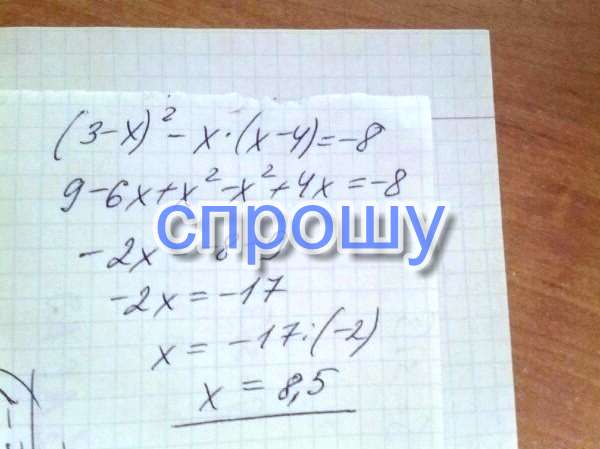 (3-x)² - x·(x-4)=-8
9-6x+x²-x²+4x=-8
спрошу
-2x
-2x = -17
x = -17:(-2)
x = 8,5